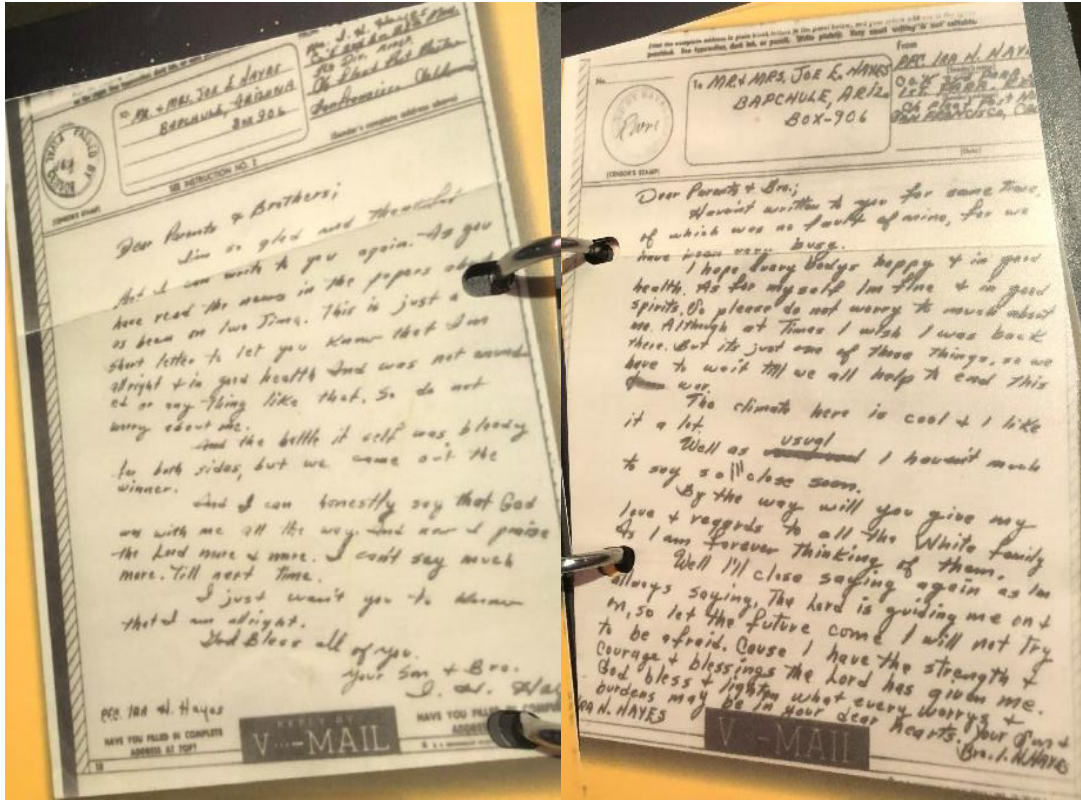 To MR. + MRS. JOE E. HAYES
BAPCHULE, ARIZONA
BOX 906
5th Div.
San Francisco
(Sender's complete address above)
SEE INSTRUCTION NO. 2
(CENSOR'S STAMP)
Dear Parents & Brothers;
I'm so glad and thankful
And I can write to you again. As you
have read the news in the papers
as been on Iwo Jima. This is just a
short letter to let you know that I am
allright + in good health And was not wound-
ed or any thing like that. So do not
worry about me.
And the battle it self was bloody
for both sides, but we came out the
winner.
And I can honestly say that God
was with me all the way. And now I praise
the Lord more & more. I can't say much
more. Till next time.
I just want you to know
that I am alright.
God Bless all of you.
Your Son + Bro.
I. H. Hay
PFC. IRA H. Hayes
HAVE YOU FILLED IN COMPLETE
ADDRESS AT TOP?
REPLY BY
V···-MAIL
HAVE YOU FILLED
ADDRESS
Print the complete address in plain block letters in the panel below, and your return address in the space
provided. Use typewriter, dark ink, or pencil. Write plainly. Very small writing is not suitable.
No.
To MR + MRS. JOE E. HAYES
BAPCHULE, ARIZ.
BOX-906
From
PFC. IRA H. HAYE
SAN FRANCISCO,
(Date)
(CENSOR'S STAMP)
Dear Parents + Bro.;
Haven't written to you for some time,
of which was no fault of mine, for we
have been very busy.
I hope every bodys happy + in good
health. As for myself Im fine + in good
spirits. So please do not worry to much about
me. Although at Times I wish I was back
there. But its just one of those things, so we
have to wait till we all help to end this
war.
The climate here is cool + I like
it a lot.
Well as usual I haven't much
to say so I'll close soon.
By the way will you give my
love + regards to all the White family
As I am forever thinking of them.
Well I'll close saying again as Im
always saying, The Lord is guiding me on +
on, so let the future come I will not try
to be afraid. Cause I have the strength +
courage + blessings the Lord has given me.
God bless + lighten what every worrys +
burdens may be in your dear hearts. Your Son +
Bro. I. H. HAYES
RA H. HAYES
V···-MAIL